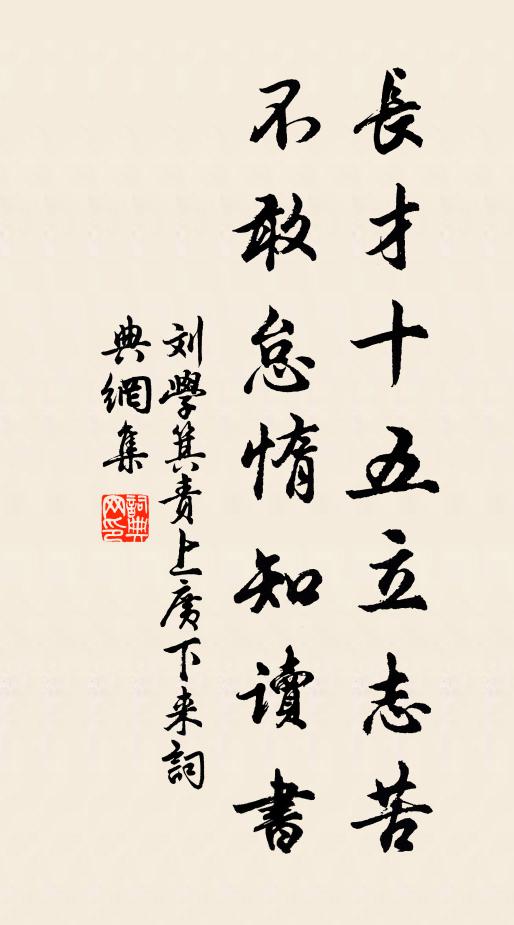 長才十五立志苦
不敢怠惰知讀書
刘學箕責上廣下来詞
典網集
詞典
网印